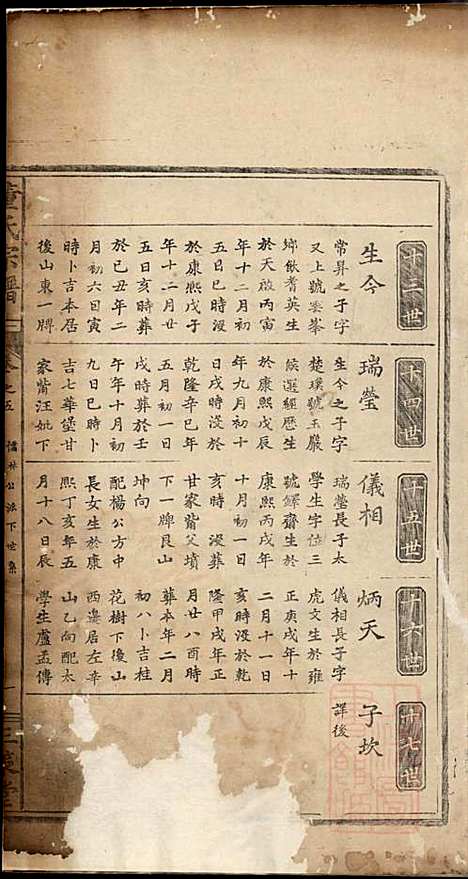 十三世
生今
常昇之子字
又上號雲峯
鄉飲耆英生
於天啟丙寅
年十二月初
五日巳時沒
於康熙戊子
年十二月廿
五日亥時葬
於己丑年二
月初六日寅
時卜吉本居
後山東一牌
十四世
瑞瑩
生今之子字
楚璞號玉嚴
候選經歷生
於康熙戊辰
年九月初十
日戌時沒於
乾隆辛巳年
五月初一日
戌時葬於壬
午年十月初
九日巳時卜
吉七葉塋甘
家嵛汪虵下
十五世
儀相
瑞瑩長子太
學生字位三
號鐸齋生於
康熙丙戌年
十月初一日
亥時 沒葬
甘家嵛父墳
下一牌艮山
坤向
配楊公方中
長女生於康
熙丁亥年五
月十八日辰
十六世
炳天
儀相長子字
虎文生於雍
正庚戌年十
二月十一日
亥時沒於乾
隆甲戌年正
月廿八酉時
葬本年二月
初八卜吉桂
花樹下後山
西邊居左辛
山乙向配太
學生盧孟傳
十七世
子坎
詳後
氏宗譜
卷之五
儒林公派下世系
一
堂